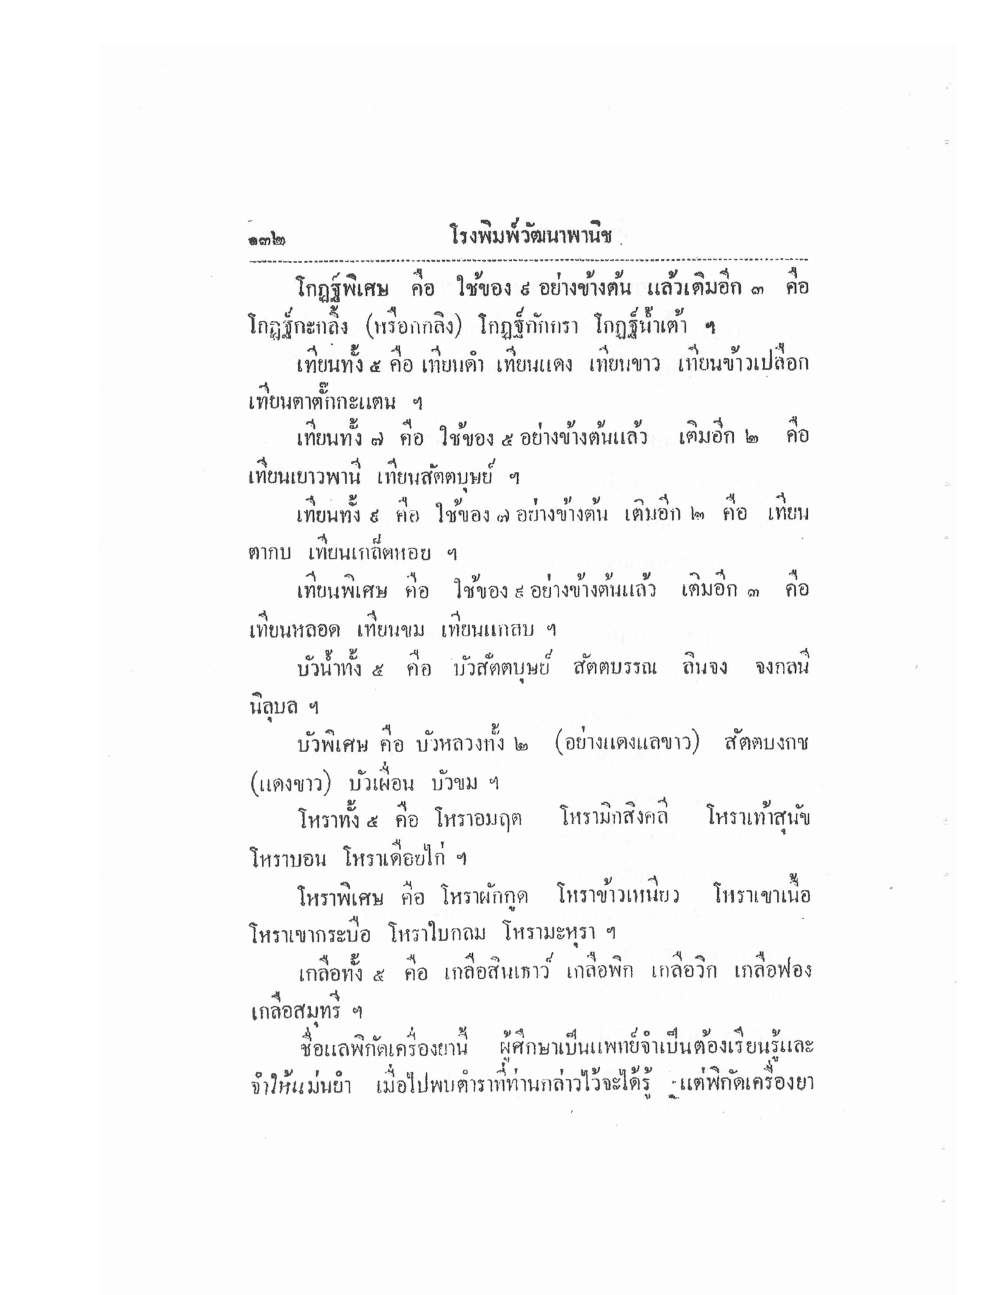 ๑๓๒ โรงพิมพ์วัฒนาพานิช
โกฏฐ์พิเศษ คือ ใช้ของ ๙ อย่างข้างต้น แล้วเติมอีก ๓ คือ
โกฏฐ์กะกลิ้ง (หรือกกลิง) โกฏฐ์กักกรา โกฏฐ์น้ำเต้า ฯ
เทียนทั้ง ๕ คือ เทียนดำ เทียนแดง เทียนขาว เทียนข้าวเปลือก
เทียนตาตั๊กกะแตน ฯ
เทียนทั้ง ๗ คือ ใช้ของ ๕ อย่างข้างต้นแล้ว เติมอีก ๒ คือ
เทียนเยาวพานี เทียนสัตตบุษย์ ฯ
เทียนทั้ง ๙ คือ ใช้ของ ๗ อย่างข้างต้น เติมอีก ๒ คือ เทียน
ตากบ เทียนเกล็ดหอย ฯ
เทียนพิเศษ คือ ใช้ของ ๙ อย่างข้างต้นแล้ว เติมอีก ๓ คือ
เทียนหลอด เทียนขม เทียนแกลบ ฯ
บัวน้ำทั้ง ๕ คือ บัวสัตตบุษย์ สัตตบรรณ ลินจง จงกลนี
นิลุบล ฯ
บัวพิเศษ คือ บัวหลวงทั้ง ๒ (อย่างแดงแลขาว) สัตตบงกช
(แดงขาว) บัวเผื่อน บัวขม ฯ
โหราทั้ง ๕ คือ โหราอมฤต โหรามิกสิงคลี โหราเท้าสุนัข
โหราบอน โหราเดือยไก่ ฯ
โหราพิเศษ คือ โหราผักกูด โหราข้าวเหนียว โหราเขาเนื้อ
โหราเขากระบือ โหราใบกลม โหรามะหุรา ฯ
เกลือทั้ง ๕ คือ เกลือสินเธาว์ เกลือพิก เกลือวิก เกลือฟอง
เกลือสมุทรี ฯ
ชื่อแลพิกัดเครื่องยานี้ ผู้ศึกษาเป็นแพทย์จำเป็นต้องเรียนรู้และ
จำให้แม่นยำ เมื่อไปพบตำราที่ท่านกล่าวไว้จะได้รู้ แต่พิกัดเครื่องยา